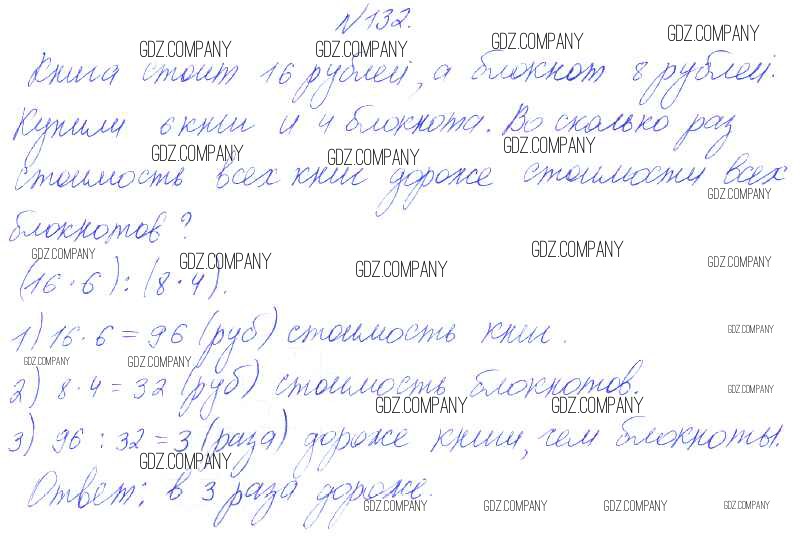 №132.
Книга стоит 16 рублей, а блокнот 8 рублей.
Купили 6 книг и 4 блокнота. Во сколько раз
стоимость всех книг дороже стоимости всех
блокнотов?
(16·6):(8·4).
1) 16·6=96 (руб) стоимость книг.
2) 8·4=32 (руб) стоимость блокнотов.
3) 96:32=3 (раза) дороже книги, чем блокноты.
Ответ: в 3 раза дороже.
GDZ.COMPANY GDZ.COMPANY GDZ.COMPANY GDZ.COMPANY
GDZ.COMPANY GDZ.COMPANY GDZ.COMPANY GDZ.COMPANY
GDZ.COMPANY GDZ.COMPANY GDZ.COMPANY GDZ.COMPANY GDZ.COMPANY
GDZ.COMPANY GDZ.COMPANY GDZ.COMPANY
GDZ.COMPANY GDZ.COMPANY GDZ.COMPANY
GDZ.COMPANY GDZ.COMPANY GDZ.COMPANY GDZ.COMPANY GDZ.COMPANY